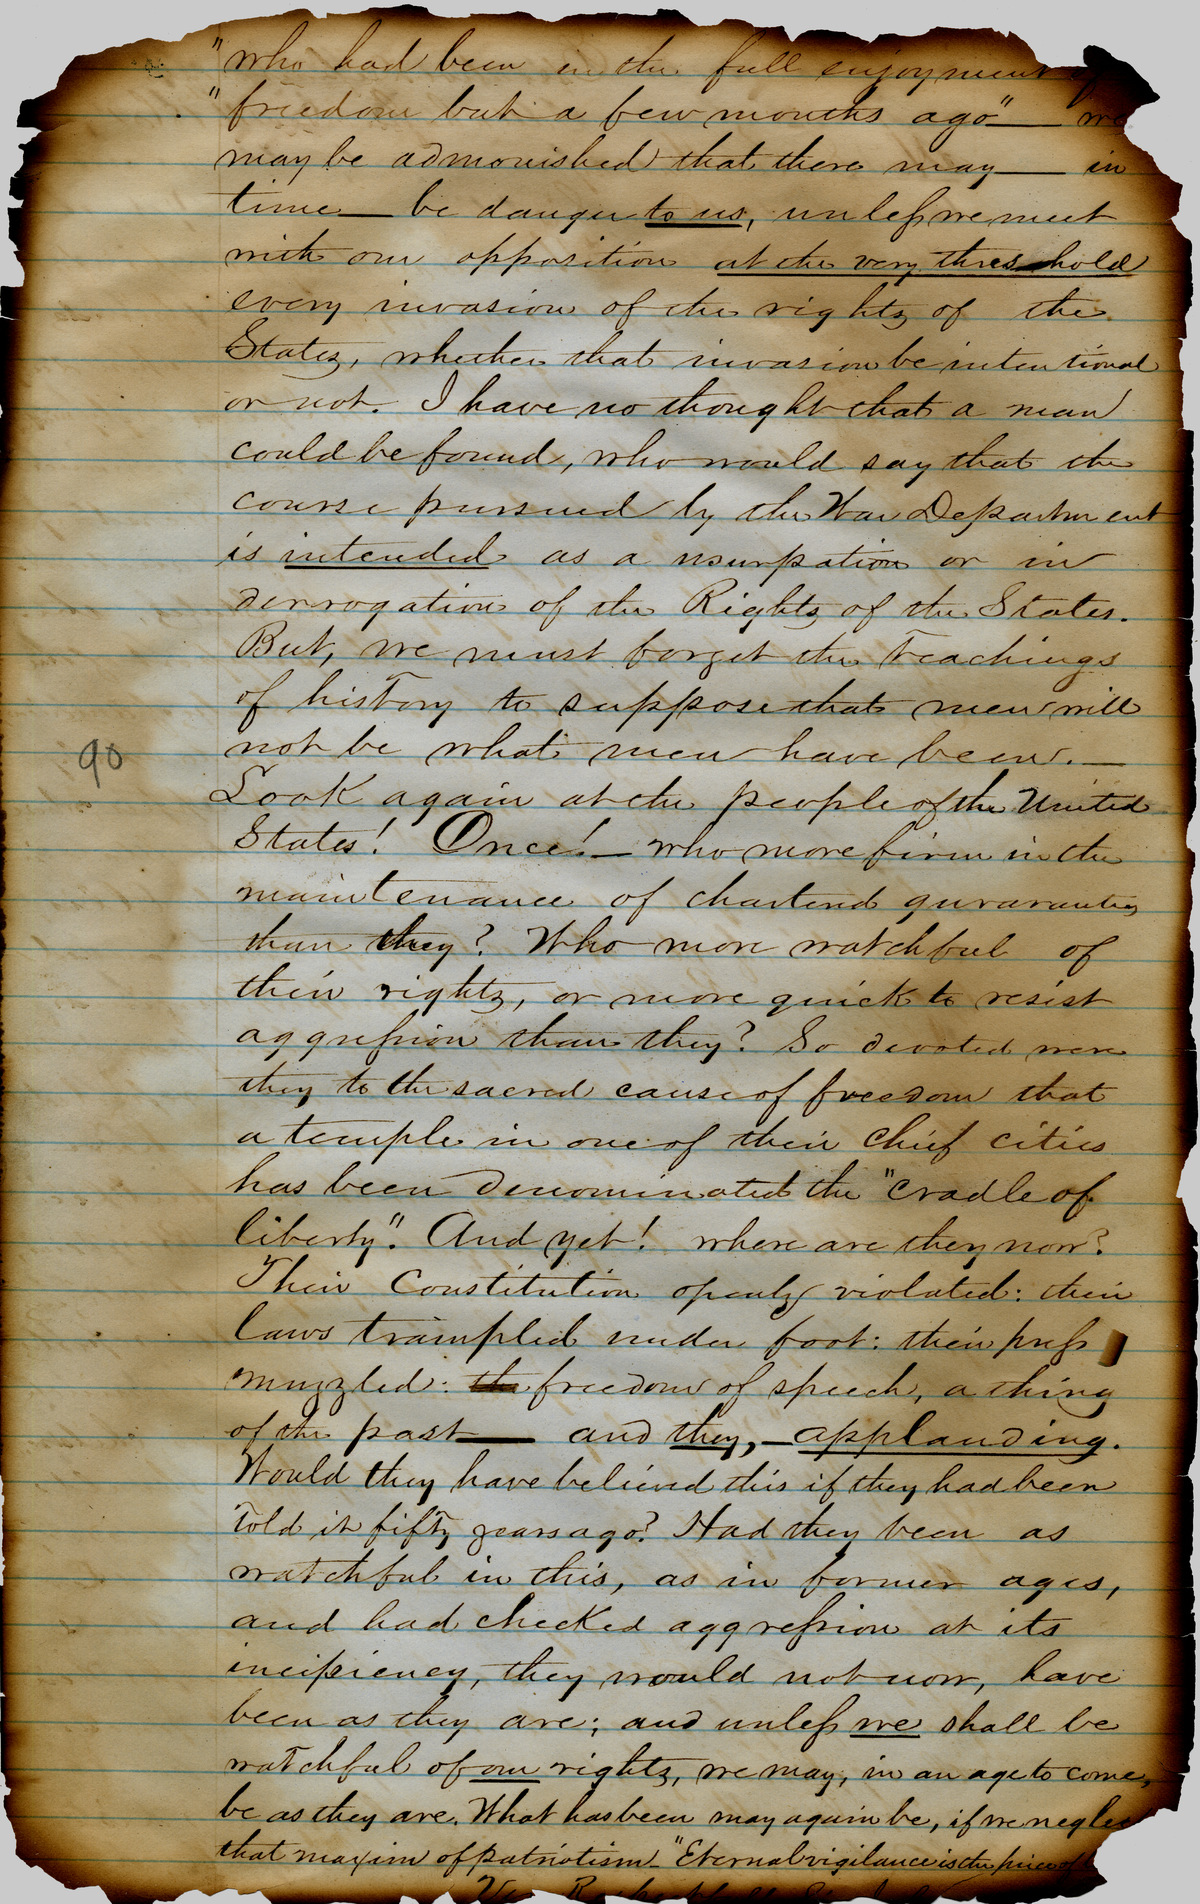 "who had been in the full enjoyment of
"freedom but a few months ago" — we
may be admonished that there may — in
time — be danger to us, unless we meet
with our opposition at the very threshold
every invasion of the rights of the
States, whether that invasion be intentional
or not. I have no thought that a man
could be found, who would say that the
course pursued by the War Department
is intended as a usurpation or in
derrogation of the Rights of the States.
But, we must forget the Teachings
of history to suppose that men will
not be what men have been. —
90
Look again at the people of the United
States! Once! — who more firm in the
maintenance of chartered guraranties
than they? Who more watchful of
their rights, or more quick to resist
aggression than they? So devoted were
they to the sacred cause of freedom that
a temple in one of their chief cities
has been denominated the "cradle of
liberty". And yet! where are they now?
Their Constitution openly violated: their
laws trampled under foot: their press
muzzled: the freedom of speech, a thing
of the past — and they, — applauding.
Would they have believed this if they had been
Told it fifty years ago? Had they been as
watchful in this, as in former ages,
and had checked aggression at its
incipiency, they would not now, have
been as they are; and unless we shall be
watchful of our rights, we may, in an age to come,
be as they are. What has been may again be, if we neglec
that maxim of patriotism — "Eternal vigilance is the price of